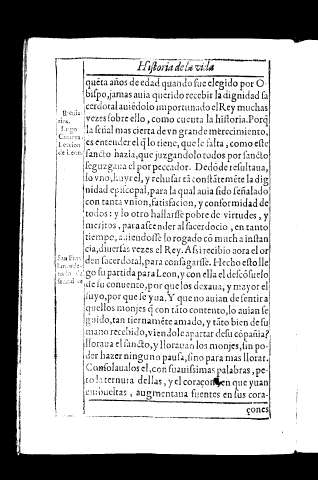 Historia de la vida
quẽta años de edad quando fue elegido por O
bispo, jamas auia querido recebir la dignidad sa
cerdotal auiẽdolo importunado el Rey muchas
vezes sobre ello, como cuenta la historia. Porq̃
la señal mas cierta de vn grande merecimiento,
es entender el q̃ lo tiene, que le falta, como este
sancto hazia, que juzgandolo todos por sancto
se juzgaua el por peccador. De dõde resultaua,
lo vno, huyr el, y rehusar tã constãtemẽte la dig
nidad episcopal, para la qual auia sido señalado
con tanta vnion, satisfacion, y conformidad de
todos: y lo otro hallarse pobre de virtudes, y
meritos, para ascender al sacerdocio, en tanto
tiempo, auiendosse lo rogado cõ mucha instan
cia, diuersas vezes el Rey. Assi recibio aora el or
den sacerdotal, para consagrarse. Hecho esto lle
go su partida para Leon, y con ella el descõsuelo
de su conuento, por que los dexaua, y mayor el
suyo, por que se yua. Y que no auian de sentir a
quellos monjes q̃ con tãto contento, lo auian se
guido, tan tiernamẽte amado, y tãto bien de su
mano recebido, viendole apartar de su cõpañia?
lloraua el sancto, y llorauan los monjes, sin po-
der hazer ninguno pausa, sino para mas llorar.
Consolaualos el, con suauissimas palabras, pe-
ro la ternura dellas, y el coraçon en que yuan
embueltas, augmentaua fuentes en sus cora-
çones
Lugo
de Leon.